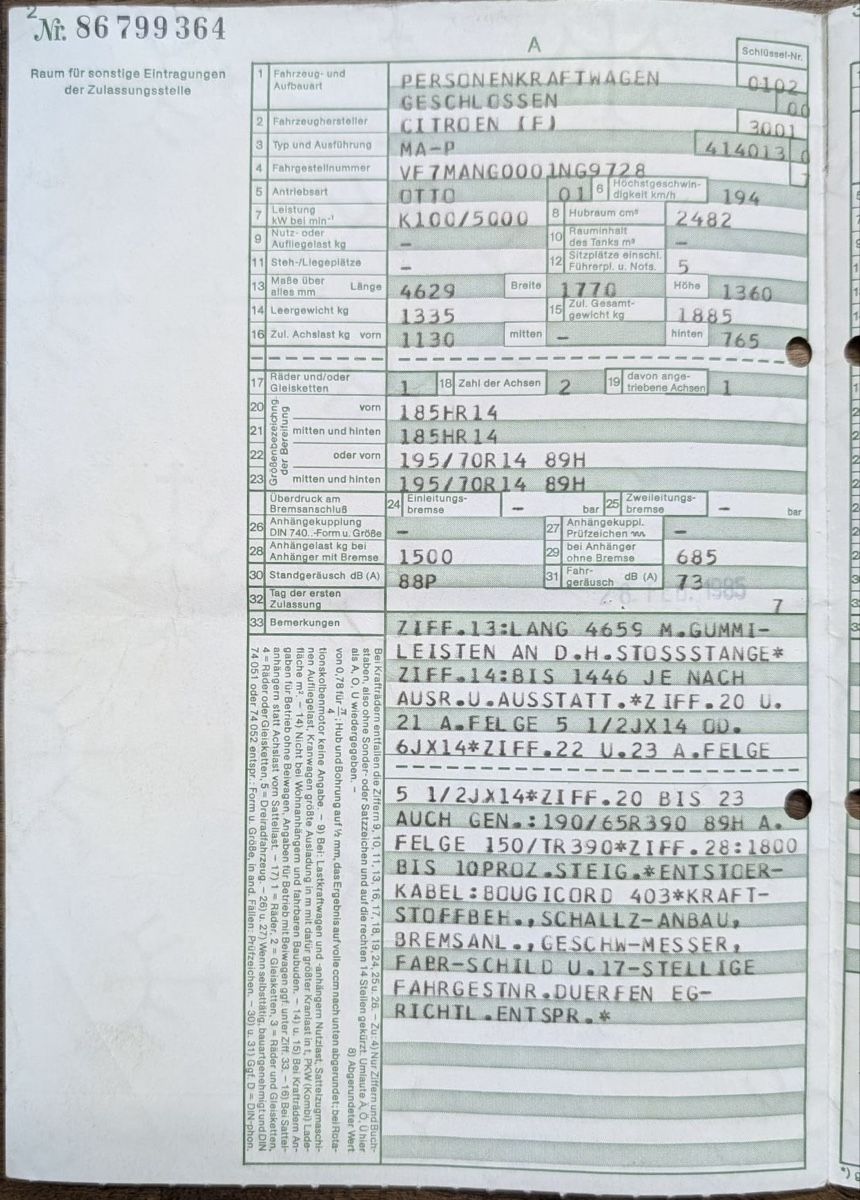 2
Nr. 86 799 364
Raum für sonstige Eintragungen
der Zulassungsstelle
A
Schlüssel-Nr.
1 Fahrzeug- und Aufbauart PERSONENKRAFTWAGEN 0102
GESCHLOSSEN 00
2 Fahrzeughersteller CITROEN (F) 3001
3 Typ und Ausführung MA-P 414013 0
4 Fahrgestellnummer VF7MANG0001NG9728 7
5 Antriebsart OTTO 01 6 Höchstgeschwindigkeit km/h 194
7 Leistung kW bei min⁻¹ K100/5000 8 Hubraum cm³ 2482
9 Nutz- oder Aufliegelast kg - 10 Rauminhalt des Tanks m³ -
11 Steh-/Liegeplätze - 12 Sitzplätze einschl. Führerpl. u. Nots. 5
13 Maße über alles mm Länge 4629 Breite 1770 Höhe 1360
14 Leergewicht kg 1335 15 Zul. Gesamtgewicht kg 1885
16 Zul. Achslast kg vorn 1130 mitten - hinten 765
17 Räder und/oder Gleisketten 1 18 Zahl der Achsen 2 19 davon angetriebene Achsen 1
Größenbezeichnung der Bereifung
20 vorn 185HR14
21 mitten und hinten 185HR14
22 oder vorn 195/70R14 89H
23 mitten und hinten 195/70R14 89H
Überdruck am Bremsanschluß 24 Einleitungsbremse - bar 25 Zweileitungsbremse - bar
26 Anhängekupplung DIN 740..-Form u. Größe - 27 Anhängekuppl. Prüfzeichen -
28 Anhängelast kg bei Anhänger mit Bremse 1500 29 bei Anhänger ohne Bremse 685
30 Standgeräusch dB (A) 88P 31 Fahrgeräusch dB (A) 73
32 Tag der ersten Zulassung 1985 7
33 Bemerkungen ZIFF.13:LANG 4659 M.GUMMI-
LEISTEN AN D.H.STOSSSTANGE*
ZIFF.14:BIS 1446 JE NACH
AUSR.U.AUSSTATT.*ZIFF.20 U.
21 A.FELGE 5 1/2JX14 OD.
6JX14*ZIFF.22 U.23 A.FELGE
5 1/2JX14*ZIFF.20 BIS 23
AUCH GEN.:190/65R390 89H A.
FELGE 150/TR390*ZIFF.28:1800
BIS 10PROZ.STEIG.*ENTSTOER-
KABEL:BOUGICORD 403*KRAFT-
STOFFBEH.,SCHALLZ-ANBAU,
BREMSANL.,GESCHW-MESSER,
FABR-SCHILD U.17-STELLIGE
FAHRGESTNR.DUERFEN EG-
RICHTL.ENTSPR.*
Bei Krafträdern entfallen die Ziffern 9, 10, 11, 13, 16, 17, 18, 19, 24, 25 u. 26. – Zu: 4) Nur Ziffern und Buch-
staben, also ohne Sonder- oder Satzzeichen und auf die rechten 14 Stellen gekürzt. Umlaute Ä, Ö, Ü hier
als A, O, U wiedergegeben. – 8) Abgerundeter Wert
von 0,78 für π/4; Hub und Bohrung auf ½ mm, das Ergebnis auf volle ccm nach unten abgerundet; bei Rota-
tionskolbenmotor keine Angabe. – 9) Bei: Lastkraftwagen und -anhängern Nutzlast, Sattelzugmaschi-
nen Aufliegelast, Kranwagen größte Ausladung in m mit dafür größter Kranlast in t, PKW (Kombi) Lade-
fläche m². – 14) Nicht bei Wohnanhängern und fahrbaren Baubuden. – 14) u. 15) Bei Krafträdern An-
gaben für Betrieb ohne Beiwagen, Angaben für Betrieb mit Beiwagen ggf. unter Ziff. 33. – 16) Bei Sattel-
anhängern statt Achslast vorn Sattellast. – 17) 1 = Räder, 2 = Gleisketten, 3 = Räder und Gleisketten,
4 = Räder oder Gleisketten, 5 = Dreiradfahrzeug. – 26) u. 27) Wenn selbsttätig, bauartgenehmigt und DIN
74 051 oder 74 052 entspr.: Form u. Größe, in and. Fällen: Prüfzeichen. – 30) u. 31) Ggf. D = DIN-phon.